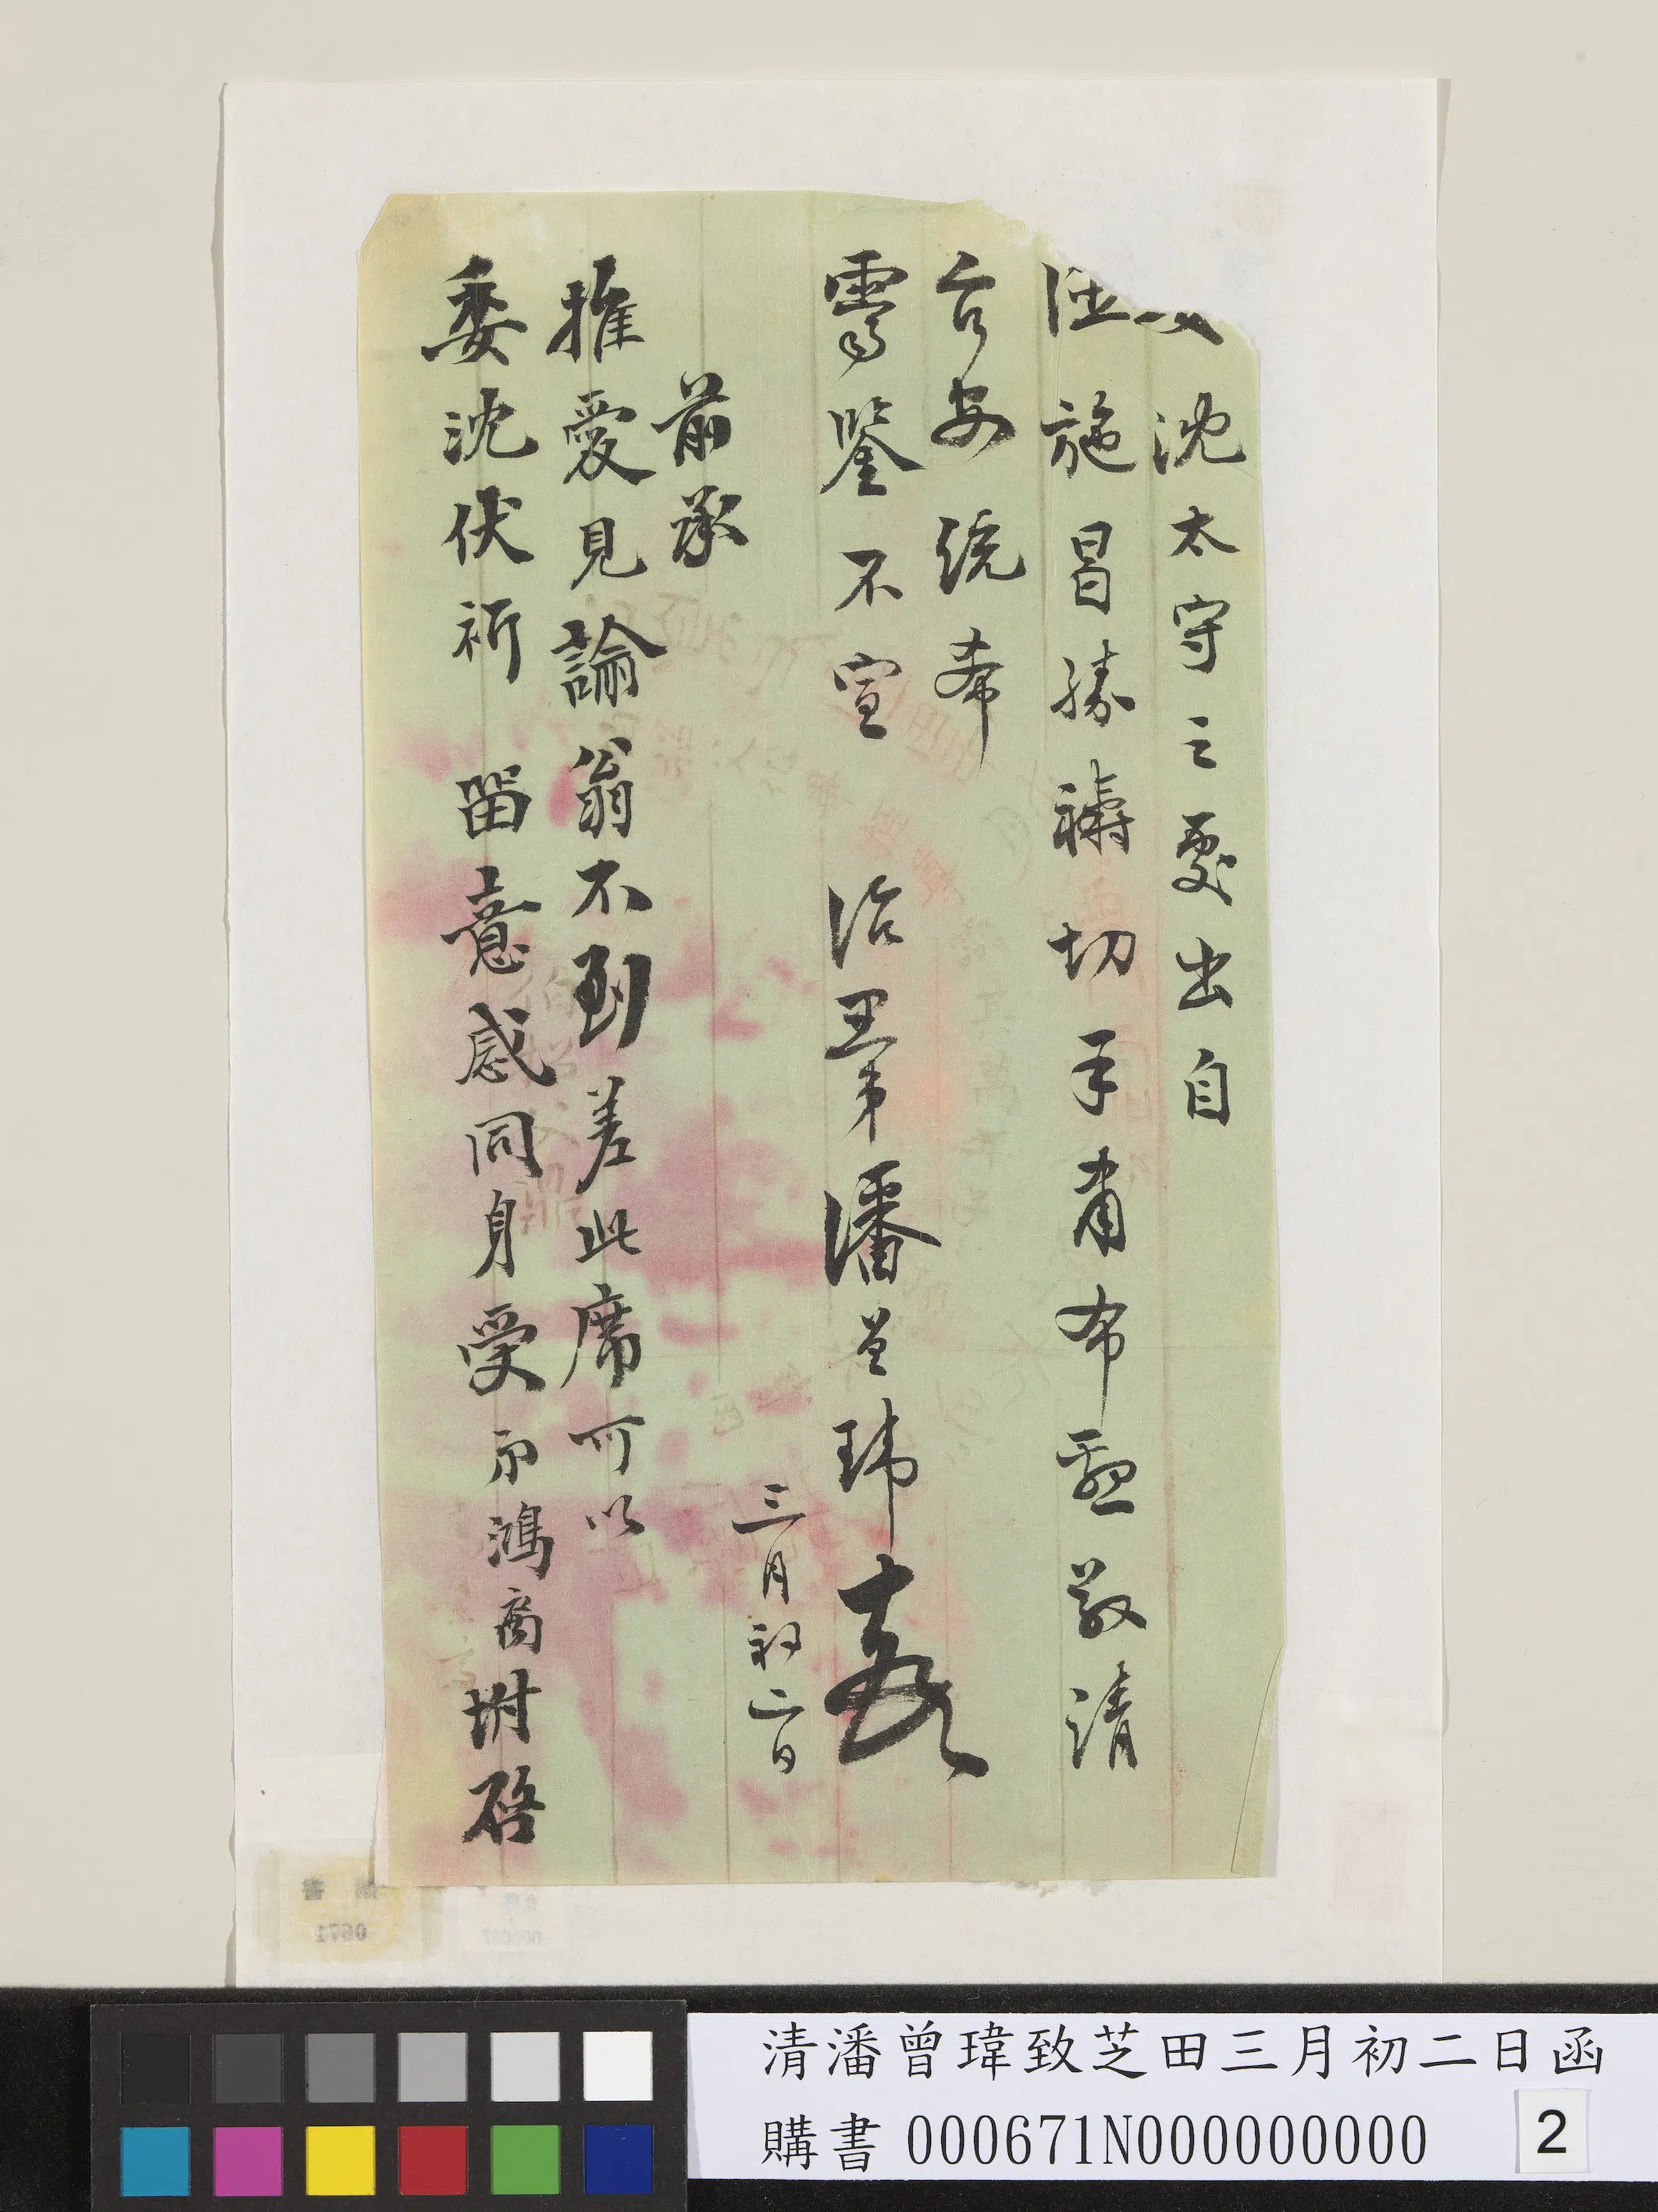 沈太守之處出自
施曷勝禱切手肅布懇敬請
台安統希
霽鑒不宣 治愚弟潘曾瑋頓首
三月初二日
前承
推愛見論翁不到差此席可以
委沈伏祈 畱意感同身受 鴻 附啓
清潘曾瑋致芝田三月初二日函
購書 000671N000000000 2